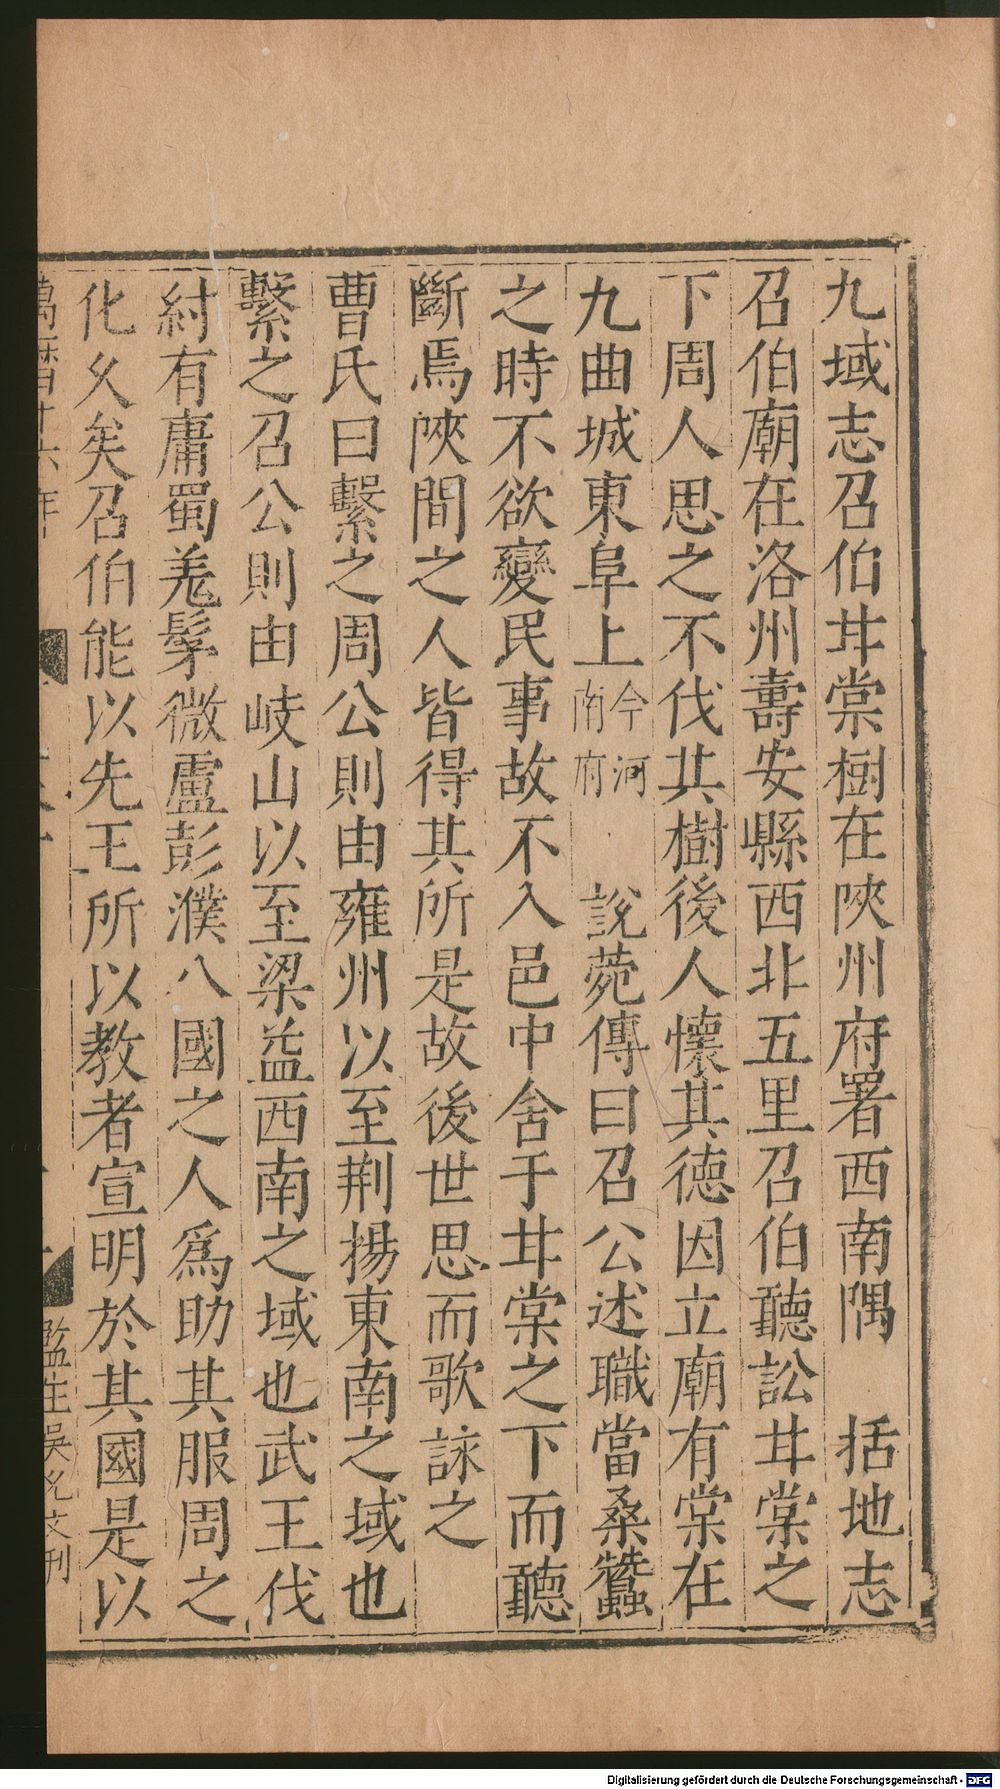 九域志召伯甘棠樹在陝州府署西南隅　括地志
召伯廟在洛州壽安縣西北五里召伯聽訟甘棠之
下周人思之不伐其樹後人懷其德因立廟有棠在
九曲城東阜上今河南府　說苑傳曰召公述職當桑蠶
之時不欲變民事故不入邑中舍于甘棠之下而聽
斷焉陝間之人皆得其所是故後世思而歌詠之
曹氏曰繫之周公則由雍州以至荆揚東南之域也
繫之召公則由岐山以至梁益西南之域也武王伐
紂有庸蜀羌髳微盧彭濮八國之人爲助其服周之
化久矣召伯能以先王所以教者宣明於其國是以
萬曆十六年
監生吳允文刊
Digitalisierung gefördert durch die Deutsche Forschungsgemeinschaft - DFG